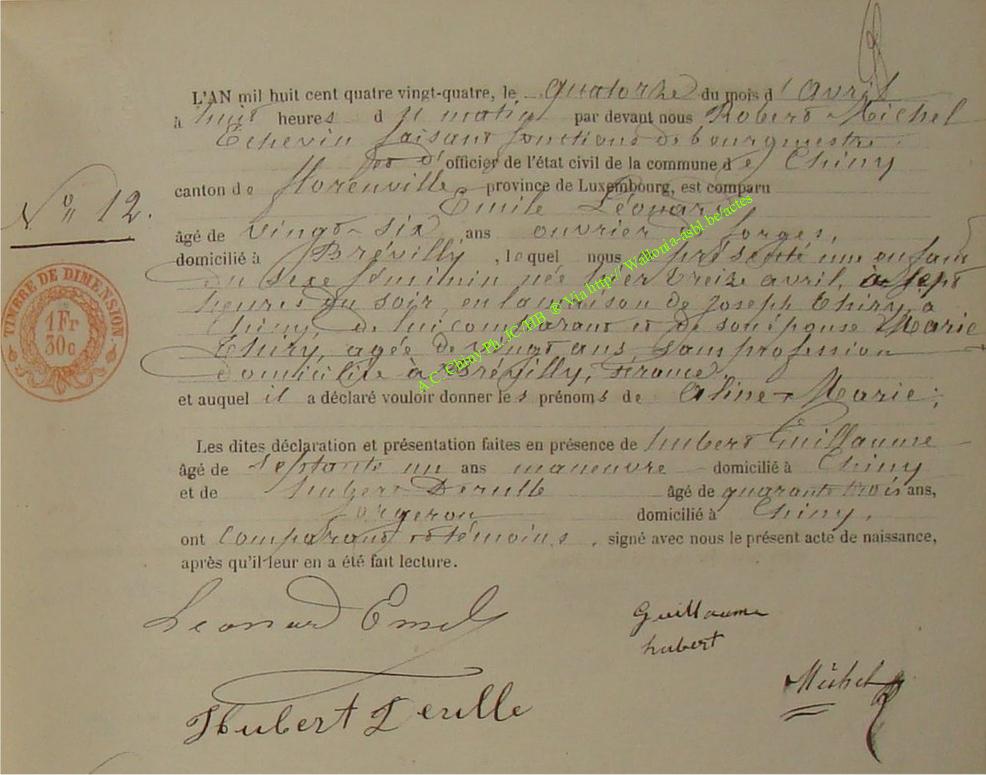 L'AN mil huit cent quatre vingt-quatre, le quatorze du mois d'avril
à huit heures du matin par devant nous Robert Michel
Echevin faisant fonctions de bourgmestre
d'officier de l'état civil de la commune de Chiny
canton de Florenville province de Luxembourg, est comparu
No 12.
Emile Léonard
âgé de vingt-six ans ouvrier de forges,
domicilié à Brévilly, lequel nous a présenté une enfant
du sexe féminin née hier treize avril, à sept
heures du soir, en la maison de Joseph Thiry, à
Chiny de lui comparant et de son épouse Marie
Thiry, agée de vingt ans, sans profession
domiciliée à Brévilly, France,
et auquel il a déclaré vouloir donner les prénoms de Aline-Marie;
TIMBRE DE DIMENSION.
1 Fr
30c
A.C. Chiny-Ph. JC HB @ Via http://Wallonia-asbl.be/actes
Les dites déclaration et présentation faites en présence de Hubert Guillaume
âgé de septante un ans manœuvre domicilié à Chiny
et de Hubert Derulle âgé de quarante trois ans,
forgeron domicilié à Chiny,
ont comparant et témoins, signé avec nous le présent acte de naissance,
après qu'il leur en a été fait lecture.
Leonard Emil
Guillaume
hubert
Michel
Hubert Derulle